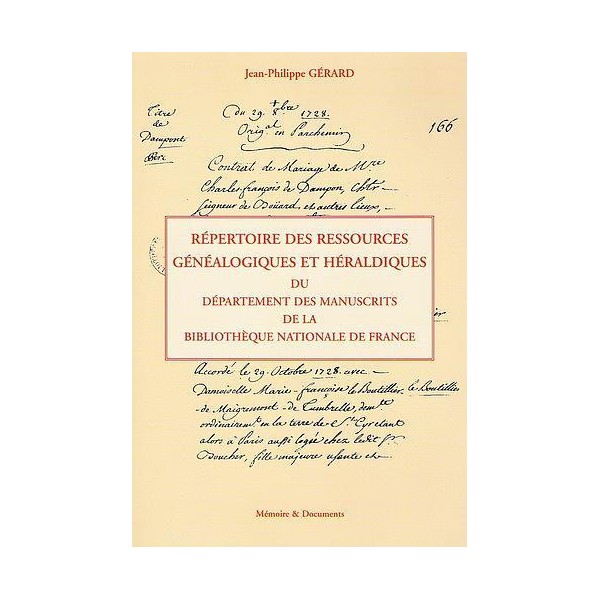 Jean-Philippe GÉRARD
Titre
de
Dampont
Berc
Du 29. 8.bre 1728.
Orig.al en Parchemin
166
Contrat de Mariage de M.re
Charles-françois de Dampon, ch.tr
Seigneur de Doüard, et autres lieux,
RÉPERTOIRE DES RESSOURCES
GÉNÉALOGIQUES ET HÉRALDIQUES
DU
DÉPARTEMENT DES MANUSCRITS
DE LA
BIBLIOTHÈQUE NATIONALE DE FRANCE
Accordé le 29. Octobre 1728. avec
Damoiselle Marie-françoise le Boutillier, le Boutillier
-de Maigremont-de Cumbrelle, dem.te
ordinairem.t en la terre de S.t Cyr etant
alors à Paris aussi logée chez ledit S.r
Boucher, fille majeure usante &c
Mémoire & Documents